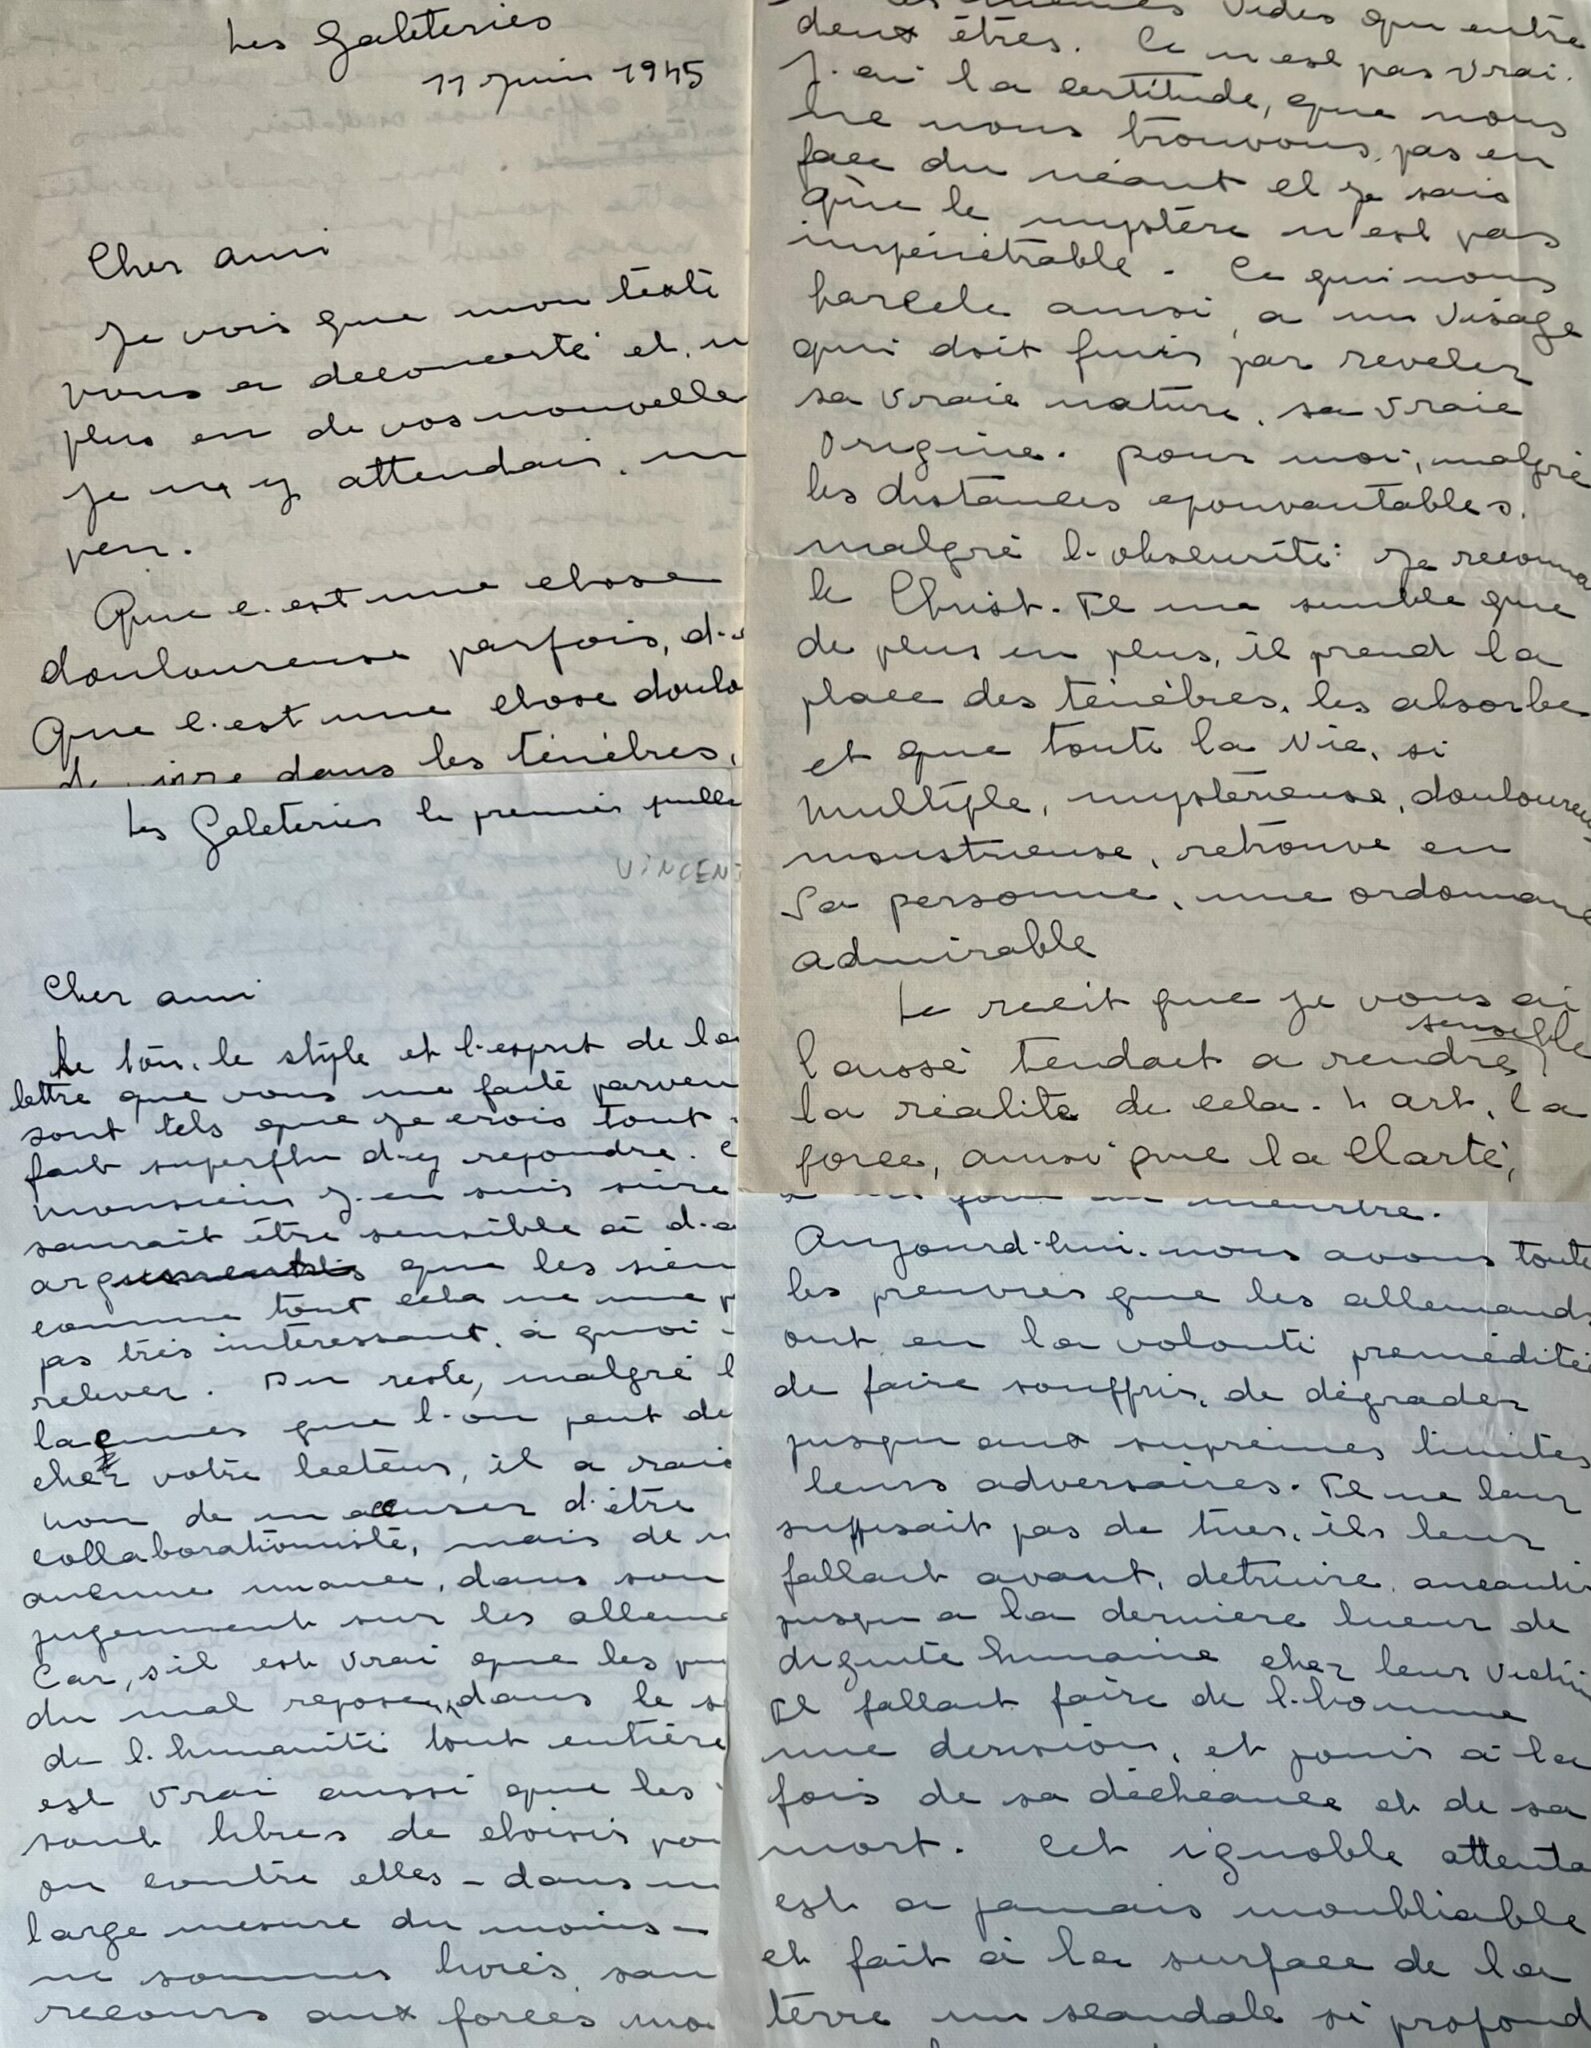 Les Galeteries
11 juin 1945
Cher ami
Je vois que mon texte
vous a deconcerté et, n
plus eu de vos nouvelle
je m'y attendais, un
peu.
Que c'est une chose
douloureuse parfois, d'
Que c'est une chose doulo
dans les ténèbres,
vides qu'entre
deux êtres. Ce n'est pas vrai.
J'ai la certitude, que nous
ne nous trouvons, pas en
face du néant et je sais
que le mystère n'est pas
impénétrable. Ce qui nous
harcele ainsi, a un visage
qui doit finir par reveler
sa vraie nature, sa vraie
Origine. pour moi, malgré
les distances epouvantables,
malgré l'obscurité: je reconna
le Christ. Il me semble que
de plus en plus, il prend la
place des ténèbres, les absorbe
et que toute la vie, si
multiple, mystérieuse, douloureu
monstrueuse, retrouve en
Sa personne, une ordonnanc
admirable
Le recit que je vous ai
laissé tendait a rendre sensible
la réalité de cela. L'art, la
force, ainsi que la Clarté,
Les Galeteries le premier juille
VINCENT
Cher ami
Le ton, le style et l'esprit de la
lettre que vous me faite parven
sont tels que je crois tout
fait superflu d'y repondre. C
monsieur j'en suis sûre
saurait être sensible à d'a
arguments que les sien
comme tout cela ne me p
pas très interessant, à quoi
relever. Du reste, malgré l
lacunes que l'on peut de
chez votre lecteur, il a rais
non de m'accuser d'être
collaborationiste, mais de n
aucune nuance, dans son
jugement sur les allema
Car, s'il est vrai que les pu
du mal repose, dans le s
de l'humanité tout entière
est vrai aussi que les
sont libres de choisir po
ou contre elles – dans u
large mesure du moins –
ne sommes livrés, san
recours aux forces mo
meurtre.
Aujourd'hui, nous avons toute
les preuves que les allemands
ont eu la volonté préméditée
de faire souffrir, de dégrader
jusqu'aux suprèmes limites
leurs adversaires. Il ne leur
suffisait pas de tuer, ils leur
fallait avant, detruire, aneantir
jusqu'a la dernière lueur de
dignité humaine chez leur victim
Il fallait faire de l'homme
une derision, et jouir à la
fois de sa déchéance et de sa
mort. Cet ignoble attenta
est a jamais inoubliable
et fait à la surface de la
terre un scandale si profond